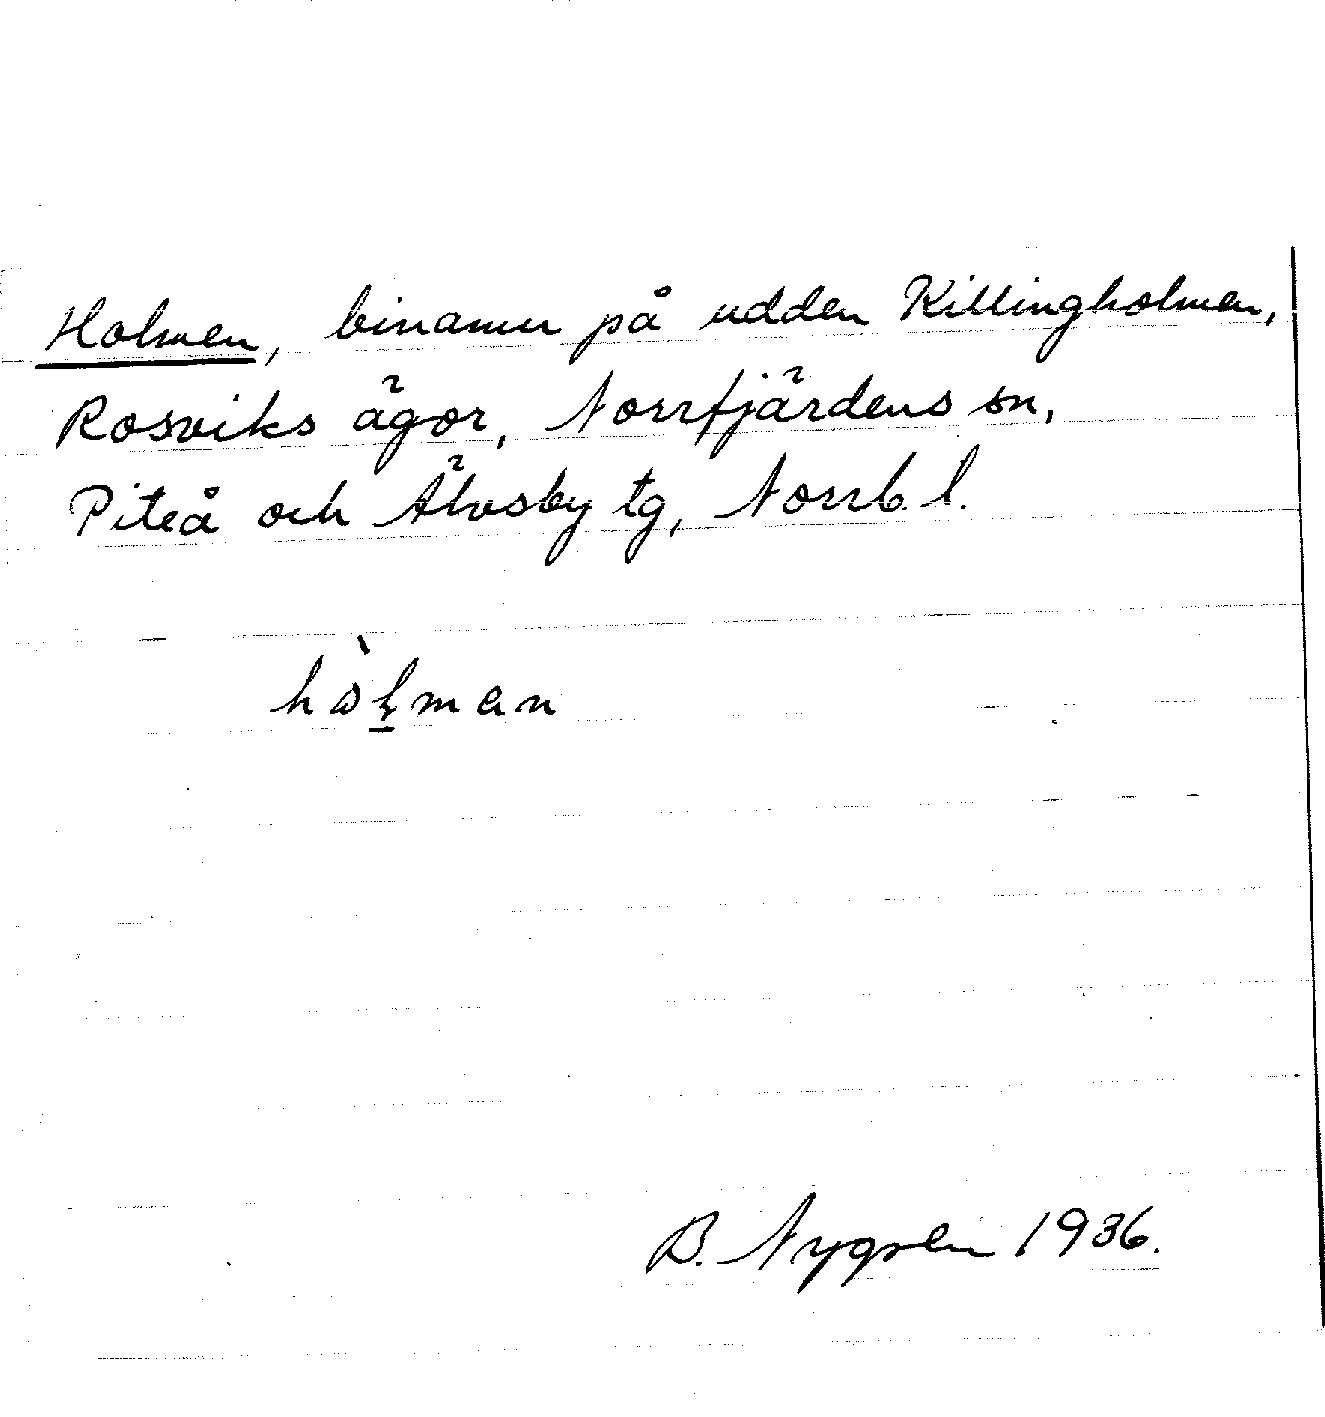 Holmen, binamn på udden Killingholmen,
Rosviks ägor, Norrfjärdens sn,
Piteå och Älvsby tg, Norrb. l.
hòl̠man
B. Nygren 1936.